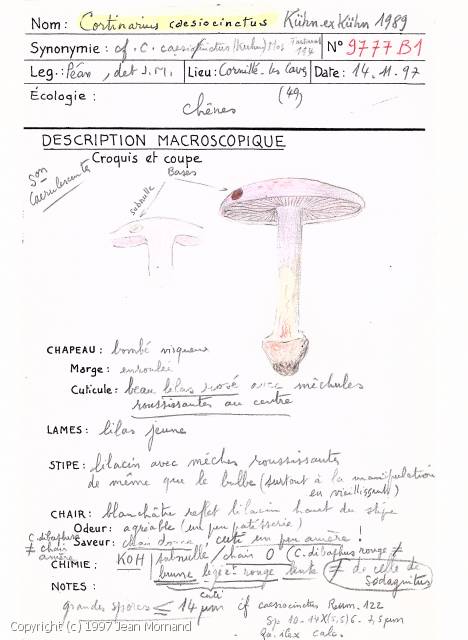 Nom: Cortinarius caesiocinctus Kühn. ex Kühn 1989
Synonymie: cf. C. caesiocinctus (Kuhn) Mos
N° 9777 B1
Leg: Péan, det J.M. Lieu: Cornillé-les Caves Date: 14.11.97
Écologie: chênes (49)
DESCRIPTION MACROSCOPIQUE
Croquis et coupe
Son
Caerulescentes
Bases
subnulle
CHAPEAU: bombé visqueux
Marge: enroulée
Cuticule: beau lilas rosé avec méchules
roussissantes au centre
LAMES: lilas jeune
STIPE: lilacin avec mèches roussissantes
de même que le bulbe (surtout à la manipulation
en vieillissant)
CHAIR: blanchâtre reflet lilacin haut du stipe
Odeur: agréable (un peu patisserie)
Saveur: chair douce, cute un peu amère!
C. dibaphus
≠ chair
amère
CHIMIE: KOH subnulle / chair 0 (C. dibaphus rouge ≠
brune légèr^t rouge ≠ de celle de
Sodagnitus
cuti
NOTES:
grandes spores ≤ 14 µm if caesiocinctus Reum. 122
Sp 10-14 X (5,5) 6-7,5 µm
Qu. ilex calc.
Copyright (c) 1997 Jean Mornand